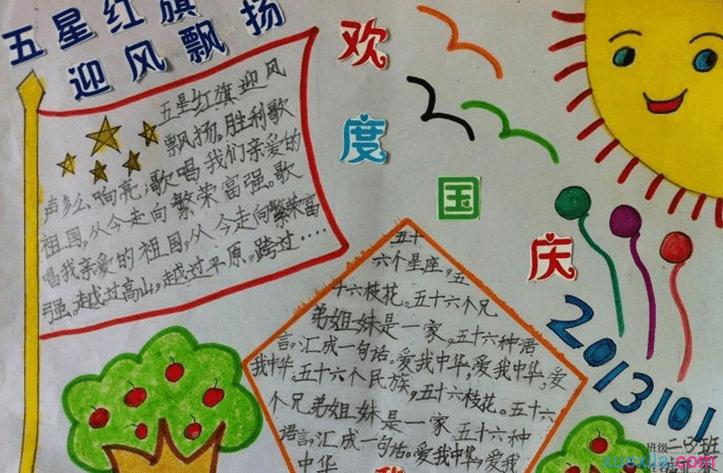 五星红旗
迎风飘扬
欢度国庆
五星红旗迎风
飘扬,胜利歌
声多么响亮;歌唱我们亲爱的
祖国,从今走向繁荣富强。歌
唱我亲爱的祖国,从今走向繁荣富
强。越过高山,越过平原。跨过……
五十
六个星座,五
十六枝花。五十六个兄
弟姐妹是一家,五十六种语
言,汇成一句话。爱我中华,爱我中华,爱
我中华,五十六个民族,五十六枝花。五十六
个兄弟姐妹是一家五十六种
语言,汇成一句话。爱我中华,爱我
中华
2013101
班级